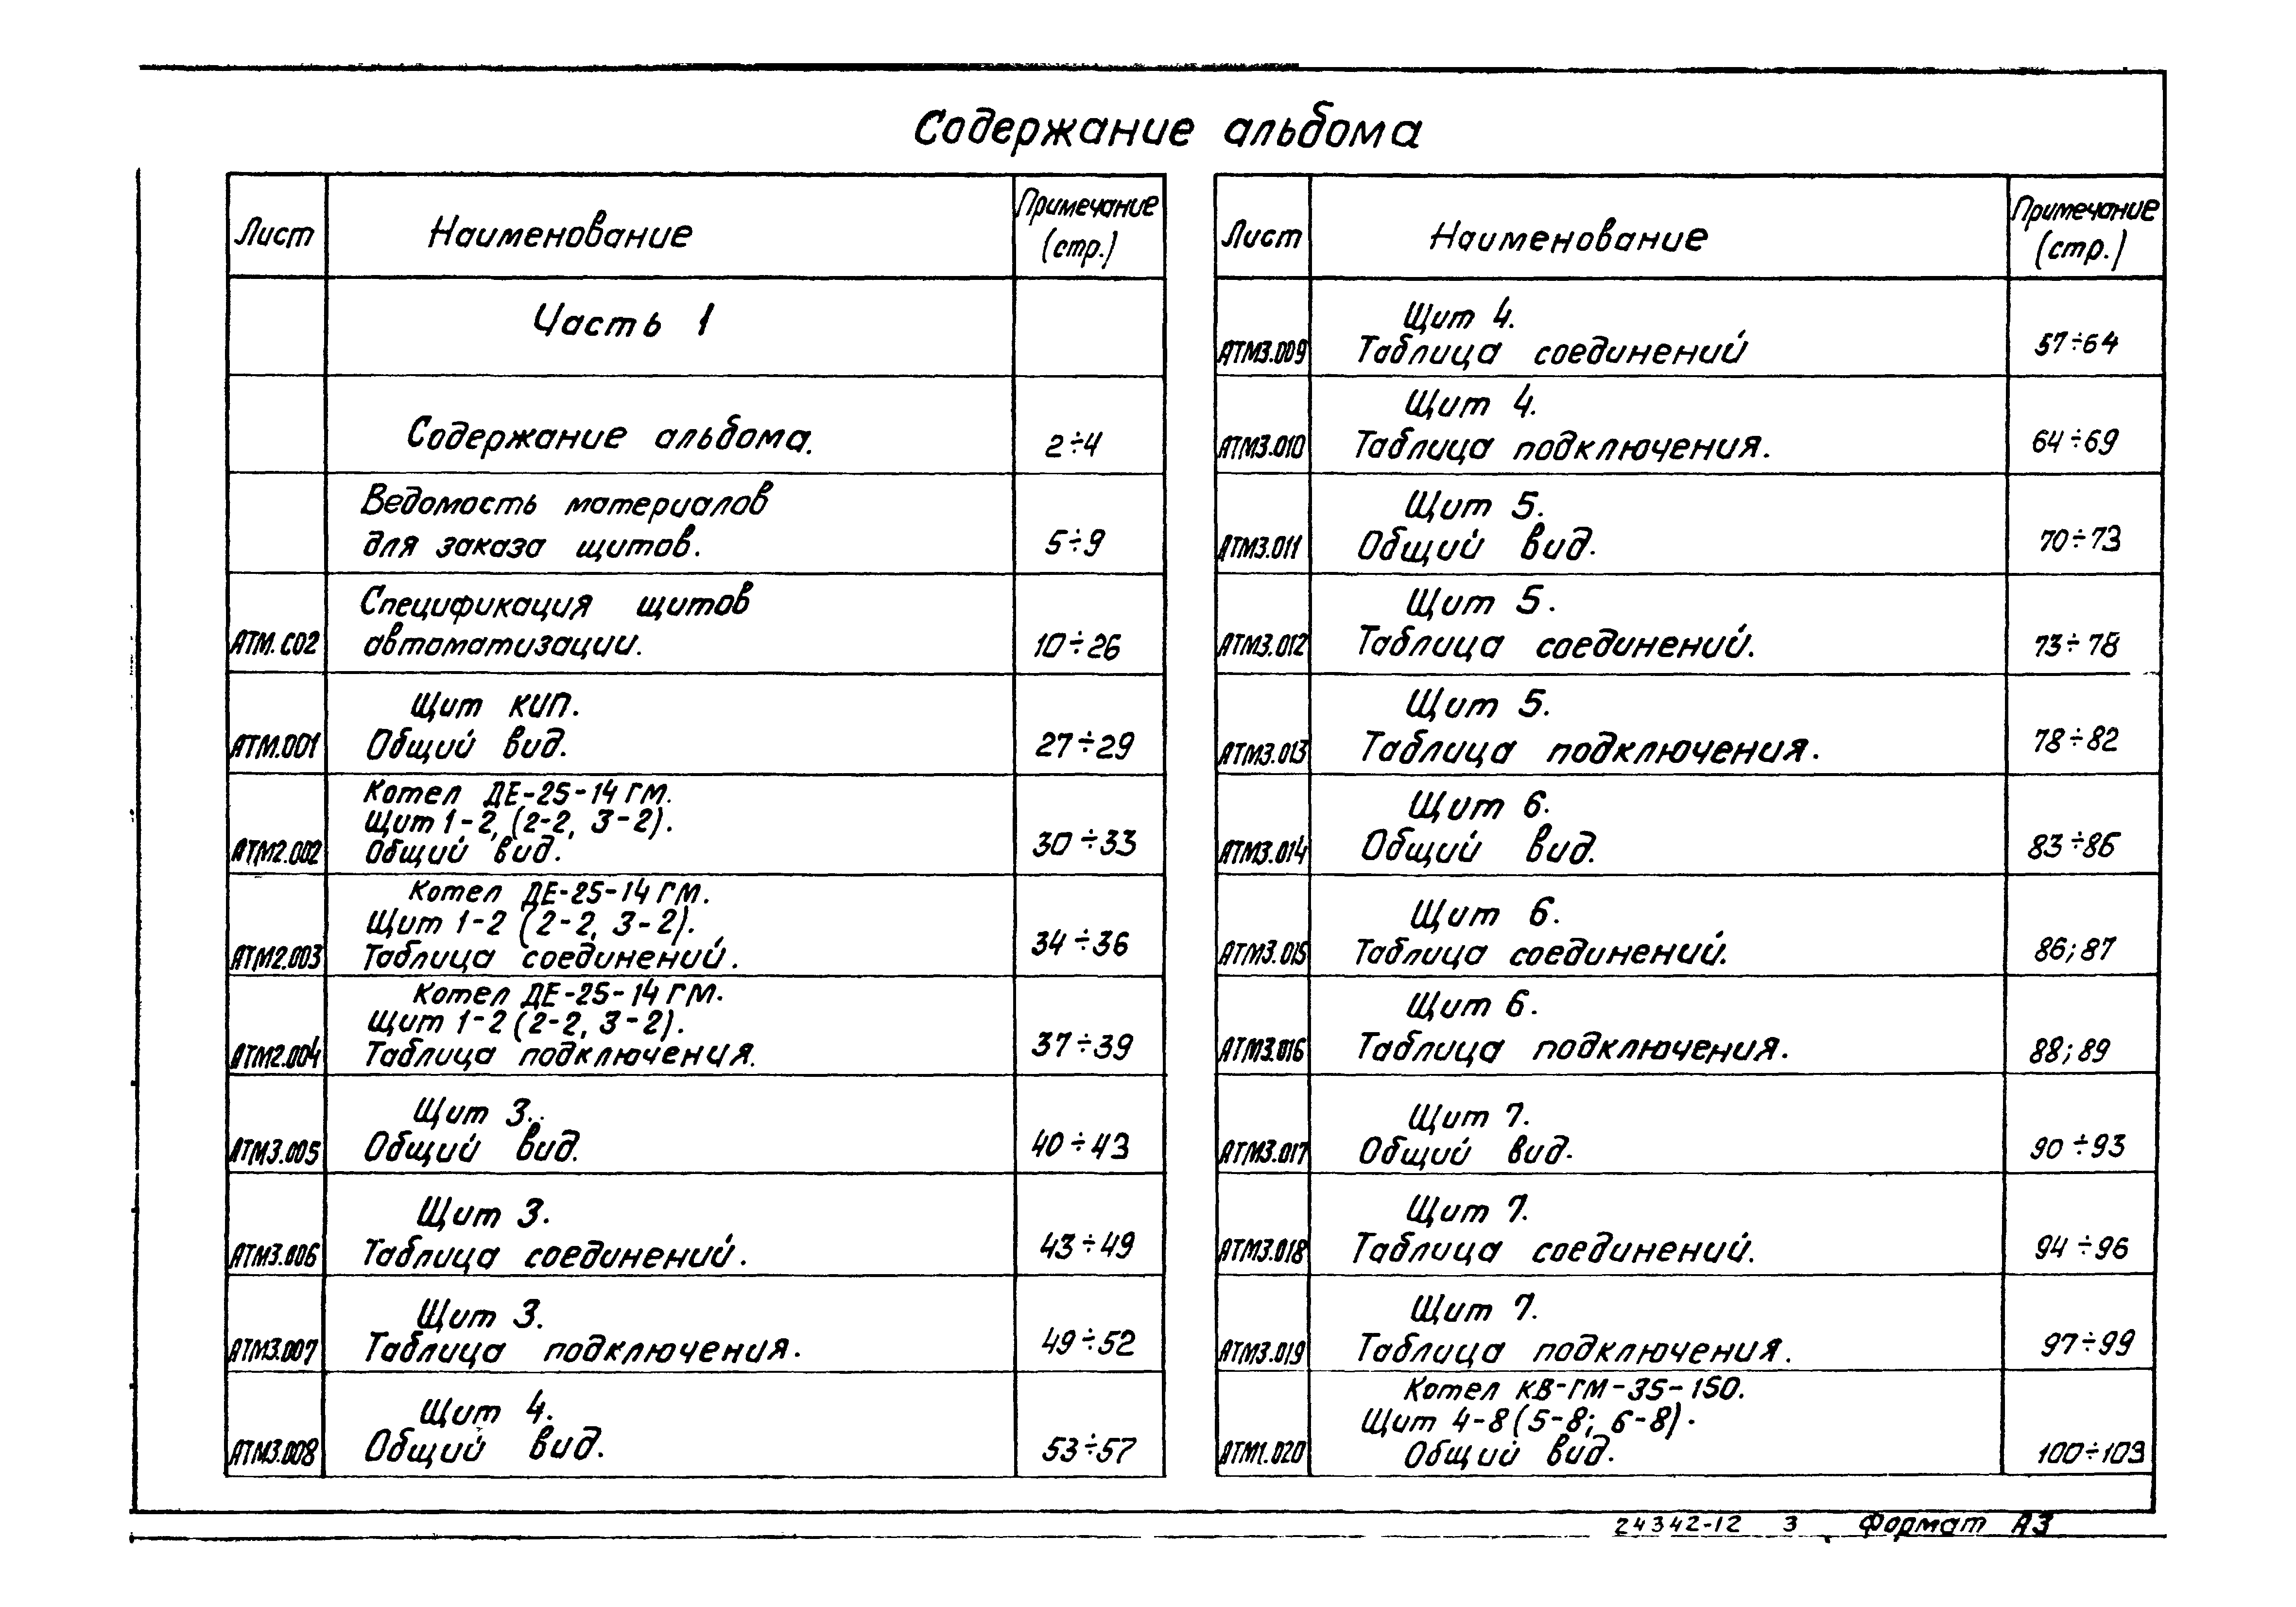 Содержание альбома
Лист Наименование Примечание (стр.)
Часть 1
Содержание альбома. 2÷4
Ведомость материалов
для заказа щитов. 5÷9
Спецификация щитов
АТМ.С02 автоматизации. 10÷26
Щит КИП.
АТМ.001 Общий вид. 27÷29
Котел ДЕ-25-14 ГМ.
Щит 1-2, (2-2, 3-2).
АТМ2.002 Общий вид. 30÷33
Котел ДЕ-25-14 ГМ.
Щит 1-2 (2-2, 3-2).
АТМ2.003 Таблица соединений. 34÷36
Котел ДЕ-25-14 ГМ.
Щит 1-2 (2-2, 3-2).
АТМ2.004 Таблица подключения. 37÷39
Щит 3.
АТМ3.005 Общий вид. 40÷43
Щит 3.
АТМ3.006 Таблица соединений. 43÷49
Щит 3.
АТМ3.007 Таблица подключения. 49÷52
Щит 4.
АТМ3.008 Общий вид. 53÷57
Лист Наименование Примечание (стр.)
Щит 4.
АТМ3.009 Таблица соединений 57÷64
Щит 4.
АТМ3.010 Таблица подключения. 64÷69
Щит 5.
АТМ3.011 Общий вид. 70÷73
Щит 5.
АТМ3.012 Таблица соединений. 73÷78
Щит 5.
АТМ3.013 Таблица подключения. 78÷82
Щит 6.
АТМ3.014 Общий вид. 83÷86
Щит 6.
АТМ3.015 Таблица соединений. 86; 87
Щит 6.
АТМ3.016 Таблица подключения. 88; 89
Щит 7.
АТМ3.017 Общий вид. 90÷93
Щит 7.
АТМ3.018 Таблица соединений. 94÷96
Щит 7.
АТМ3.019 Таблица подключения. 97÷99
Котел КВ-ГМ-35-150.
Щит 4-8 (5-8; 6-8).
АТМ1.020 Общий вид. 100÷103
24342-12 3 Формат А3